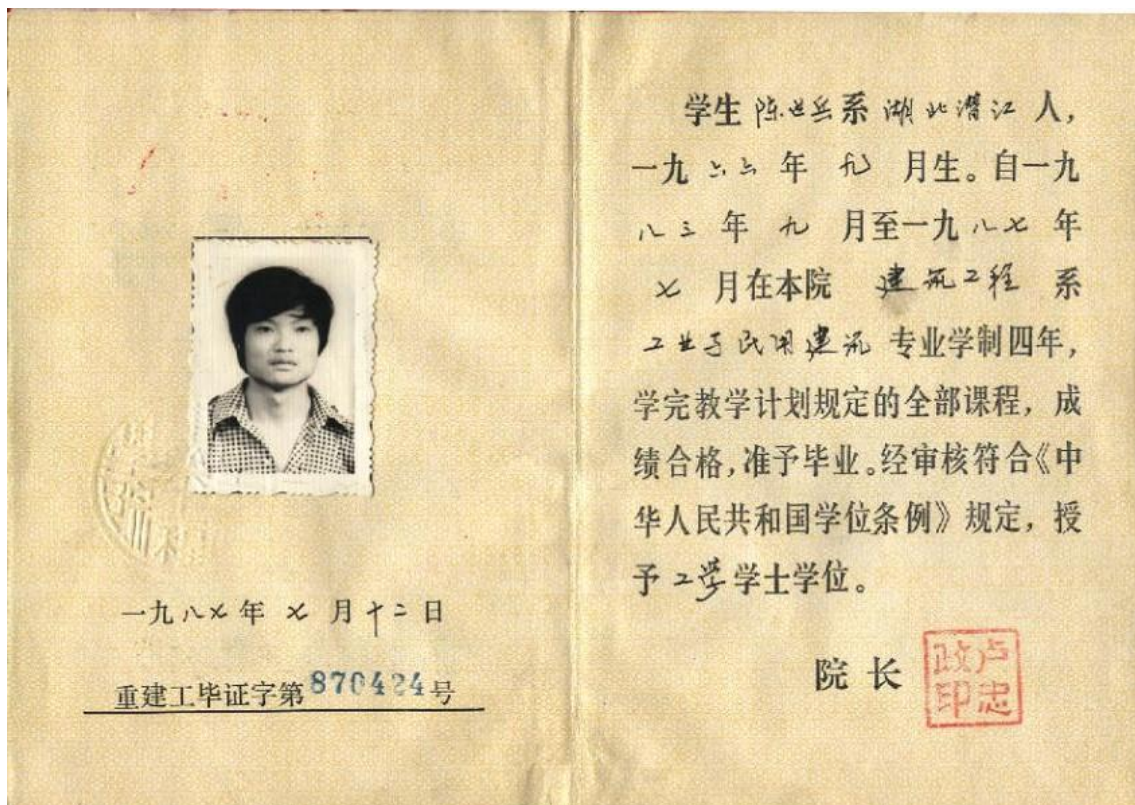 一九八七年 七 月十二日
重建工毕证字第870424号
学生 陈世岳系 湖北潜江 人,
一九六六年 九 月生。自一九
八三年 九 月至一九八七年
七 月在本院 建筑工程 系
工业与民用建筑 专业学制四年,
学完教学计划规定的全部课程,成
绩合格,准予毕业。经审核符合《中
华人民共和国学位条例》规定,授
予工学学士学位。
院长
卢忠
政印